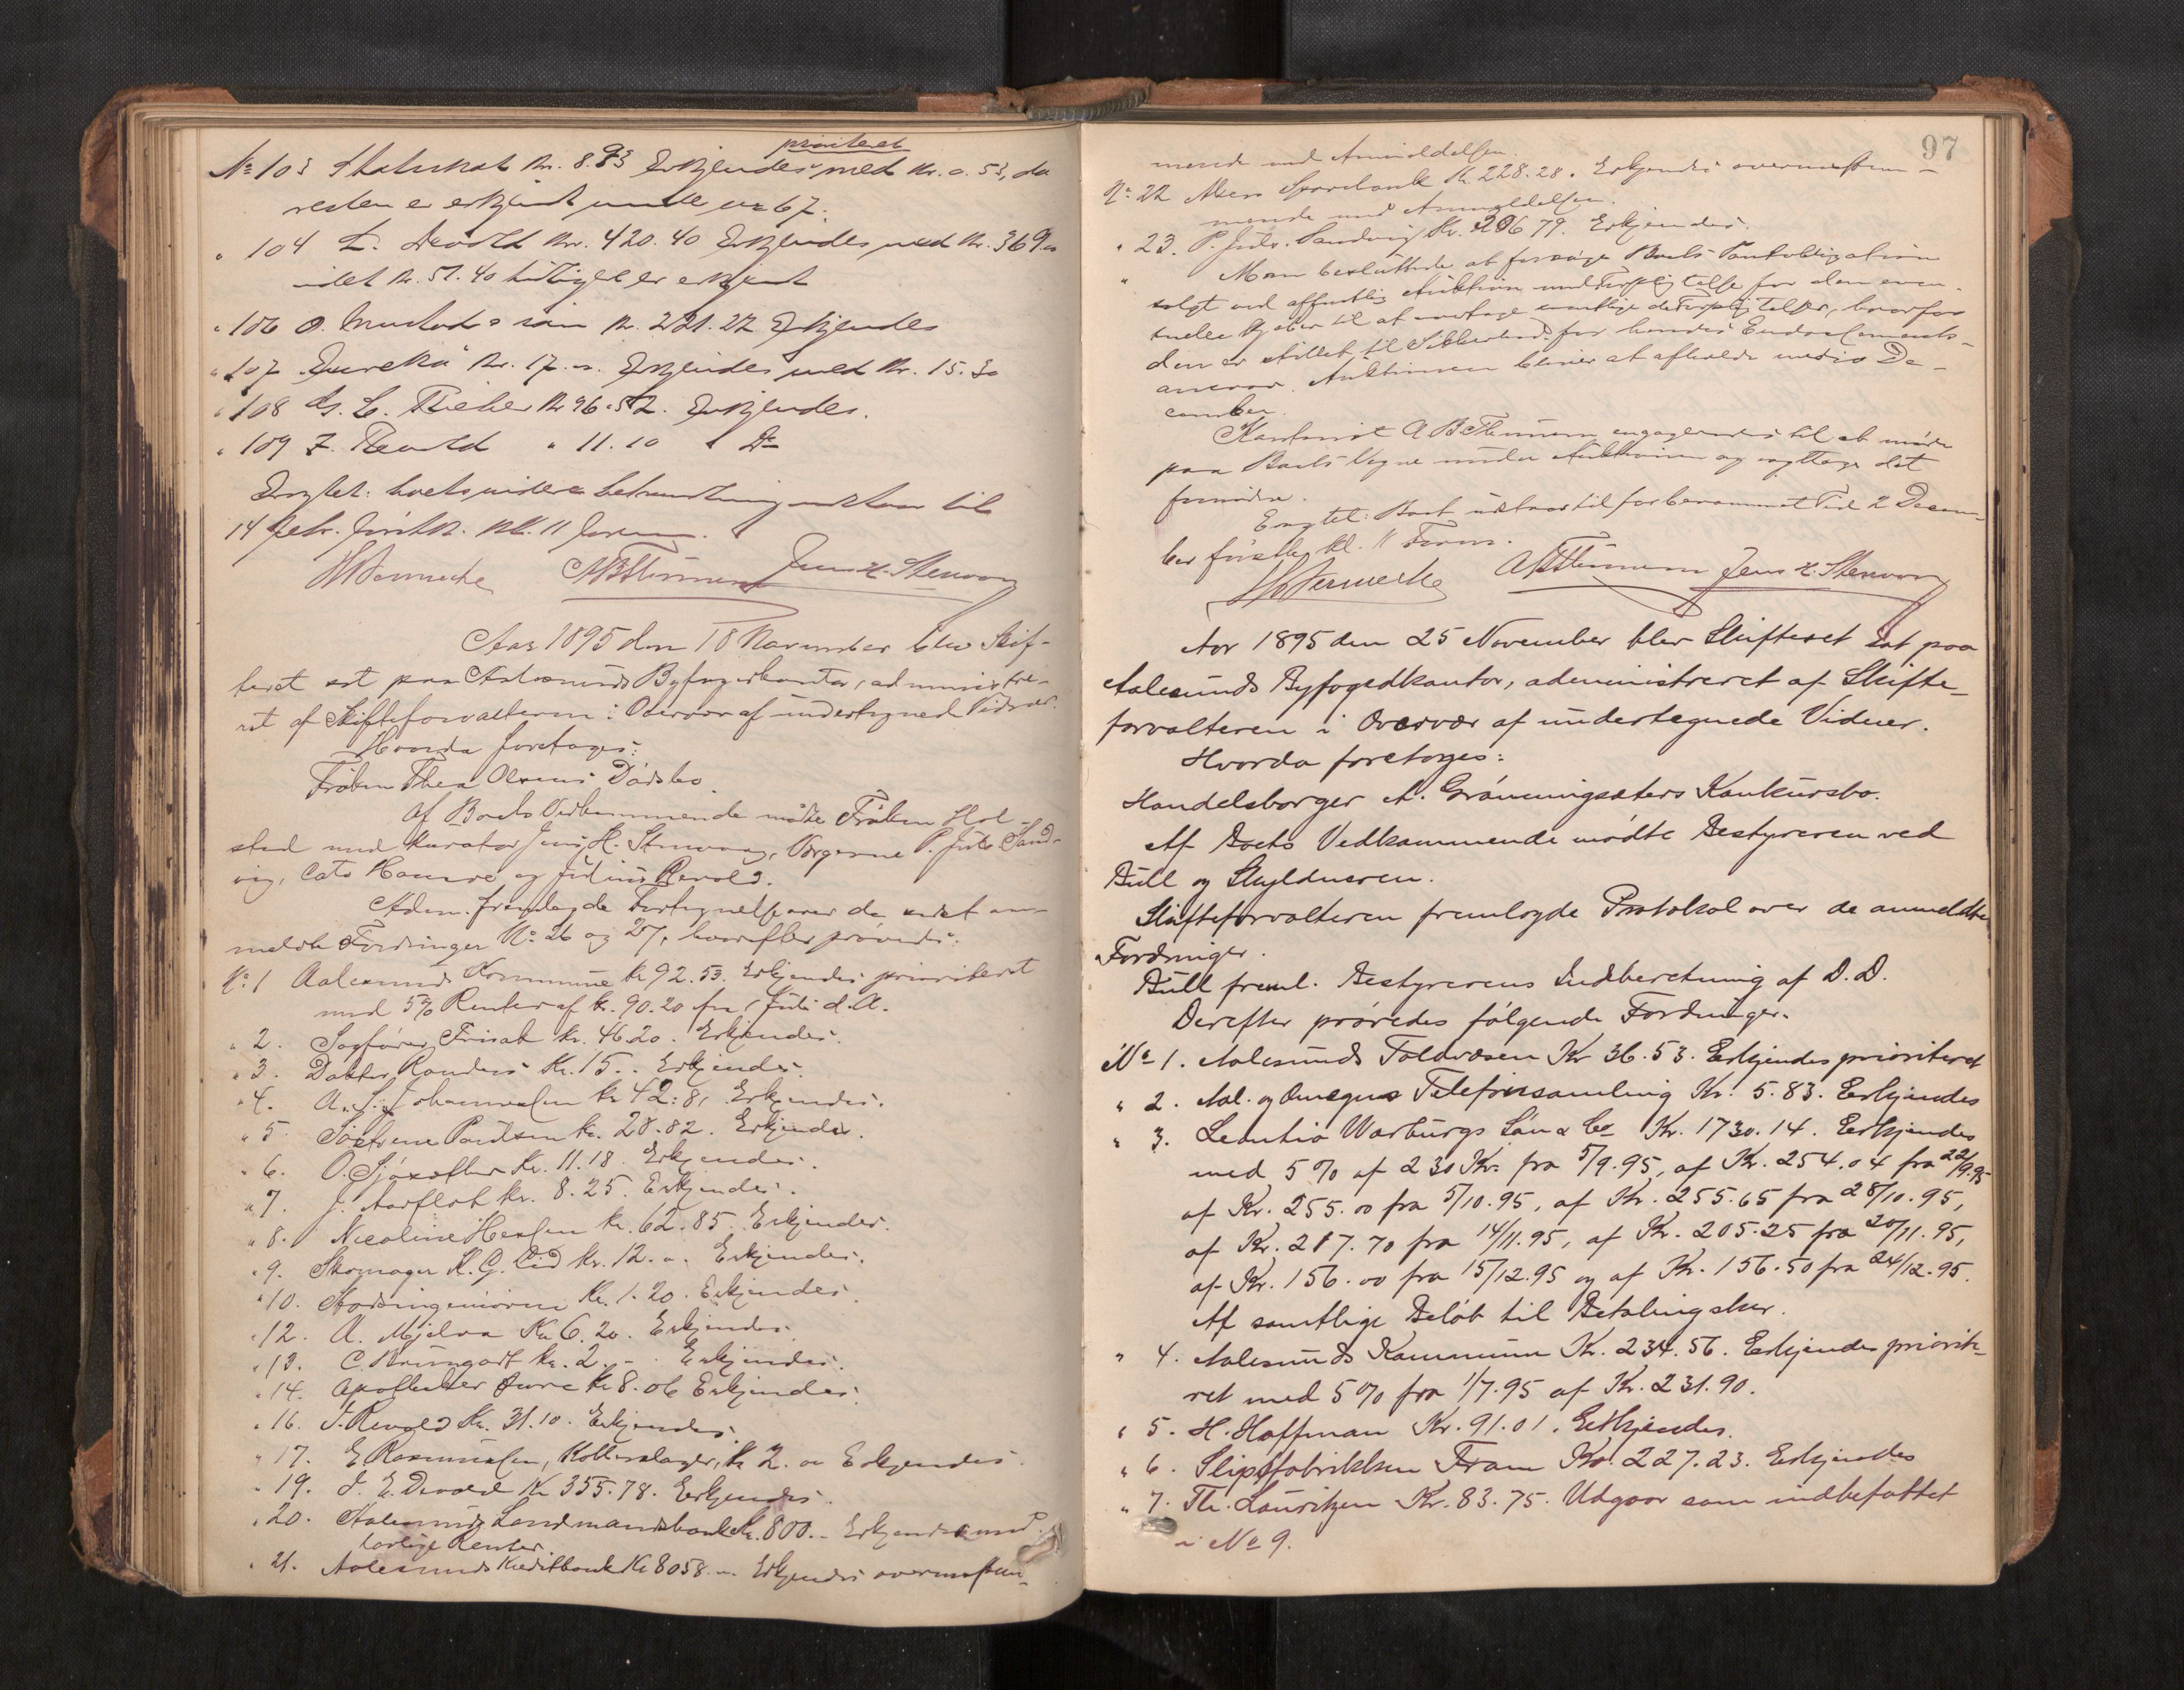 prioriteret
No 103 Statsskat Kr. 8.93 Erkjendes med Kr. 0.53, da
resten er erkjendt under No 67.
" 104 L. Devold Kr. 420.40 Erkjendes med Kr. 369.00
idet Kr. 51.40 tidligere er erkjendt
" 106 O. Mustad & søn Kr. 221.22 Erkjendes
" 107 "Eureka" Kr. 17.00. Erkjendes med Kr. 15.30
" 108 G. C. Rieber Kr 96.52. Erkjendes.
" 109 J. Revold " 11.10 Do
Eragtet: boets videre behandling udstaar til
14 febr. førstk. kl. 11 Form.
Jens H. Stenvaag
Aar 1895 den 18 November blev Skif-
teret sat paa Aalesunds Byfogedkontor, administre-
ret af Skifteforvalteren i Overvær af undertegnede Vidner.
Hvorda foretoges:
Frøken Thea Olsens Dødsbo.
Af Boets Vedkommende mødte Frøken Hol-
stad med kurator Jens H. Stenvaag, Vergerne P. Juls Sand-
vig, Cato Hamre og Julius Revold.
Adm. fremlagde Fortegnelse over de sidst an-
meldte Fordringer No 26 og 27, hvorefter prøvedes:
No 1 Aalesunds Kommune Kr 92.53. Erkjendes prioriteret
med 5% Renter af Kr. 90.20 fra 1 Juli d.A.
" 2. Sagfører Frisak Kr. 46.20. Erkjendes.
" 3. Doktor Randers Kr. 15.. Erkjendes.
" 4. A. J. Johannesen Kr 42.81 Erkjendes.
" 5. Søstrene Poulsen Kr. 28.82. Erkjendes.
" 6. O. Kr. 11.18. Erkjendes.
" 7. J. Aarflot Kr. 8.25. Erkjendes.
" 8. Nicoline Hessen Kr. 62.85. Erkjendes.
" 9. Skomager K. G. Eid Kr. 12.00. Erkjendes.
" 10. Stadsingeniøren Kr. 1.20. Erkjendes.
" 12. A. Mjelva Kr 6.20. Erkjendes.
" 13. C. Kr. 2. - . Erkjendes.
" 14. Apotheker Kr 8.06 Erkjendes.
" 16. J. Revold Kr. 31.10. Erkjendes.
" 17. E Rasmussen, Kobberslager, Kr 2.00 Erkjendes.
" 19. J. E. Devold Kr 355.78. Erkjendes.
" 20. Aalesunds Landmandsbank Kr. 800.- Erkjendes med
lovlige Renter.
" 21. Aalesunds Kreditbank Kr 8058.00. Erkjendes overensstem-
97
mende med Anmeldelsen.
No 22 Akers Sparebank Kr 228.28. Erkjendes overensstem-
mende med Anmeldelsen.
" 23. P. Juls. Sandvig Kr. 296.79. Erkjendes.
" Man besluttede at forsøge Boets Pantobligation
solgt ved offentlig Auktion med Forpligtelse for den even-
tuelle Kjøber til at overtage samtlige de Forpligtelser, hvorfor
den er stillet til Sikkerhed for hendes Endossements-
ansvar. Auktionen bliver at afholde medio De-
cember.
Kontorist A B Thinnem engageredes til at møde
paa Boets Vegne under Auktionen og iagttage det
fornødne.
Eragtet: Boet udstaar til forberammet Tid 2 Decem-
ber førstk. kl. 11 Form.
Jens H. Stenvaag
Aar 1895 den 25 November blev Skifteret sat paa
Aalesunds Byfogedkontor, administreret af Skifte-
forvalteren i Overvær af undertegnede Vidner.
Hvorda foretoges:
Handelsborger A. Grønningsæters Konkursbo.
Af Boets Vedkommende mødte Bestyreren ved
Bull og Skyldneren.
Skifteforvalteren fremlagde Protokol over de anmeldte
Fordringer.
Bull freml. Bestyrerens Indberetning af D.D.
Derefter prøvedes følgende Fordringer.
No 1. Aalesunds Toldvæsen Kr 36.53. Erkjendes prioriteret
" 2. Aal. og Omegns Telefonsamling Kr. 5.83. Erkjendes
" 3. Leontin Warburgs Søn & Co Kr. 1730.14. Erkjendes
med 5% af 230 Kr. fra 5/9.95, af Kr. 254.04 fra 22/9.95
af Kr. 255.00 fra 5/10.95, af Kr. 255.65 fra 28/10.95,
af Kr. 217.70 fra 14/11.95, af Kr. 205.25 fra 20/11.95,
af Kr. 156.00 fra 15/12.95 og af Kr. 156.50 fra 24/12.95.
Af samtlige Beløb til Betaling sker.
" 4. Aalesunds Kommune Kr. 234.56. Erkjendes priorite-
ret med 5% fra 1/7.95 af Kr. 231.90.
" 5. H. Hoffman Kr. 91.01. Erkjendes.
" 6. Slipsfabrikken Fram Kr. 227.23. Erkjendes
" 7. Th. Lauritzen Kr. 83.75. Udgaar som indbefattet
i No 9.